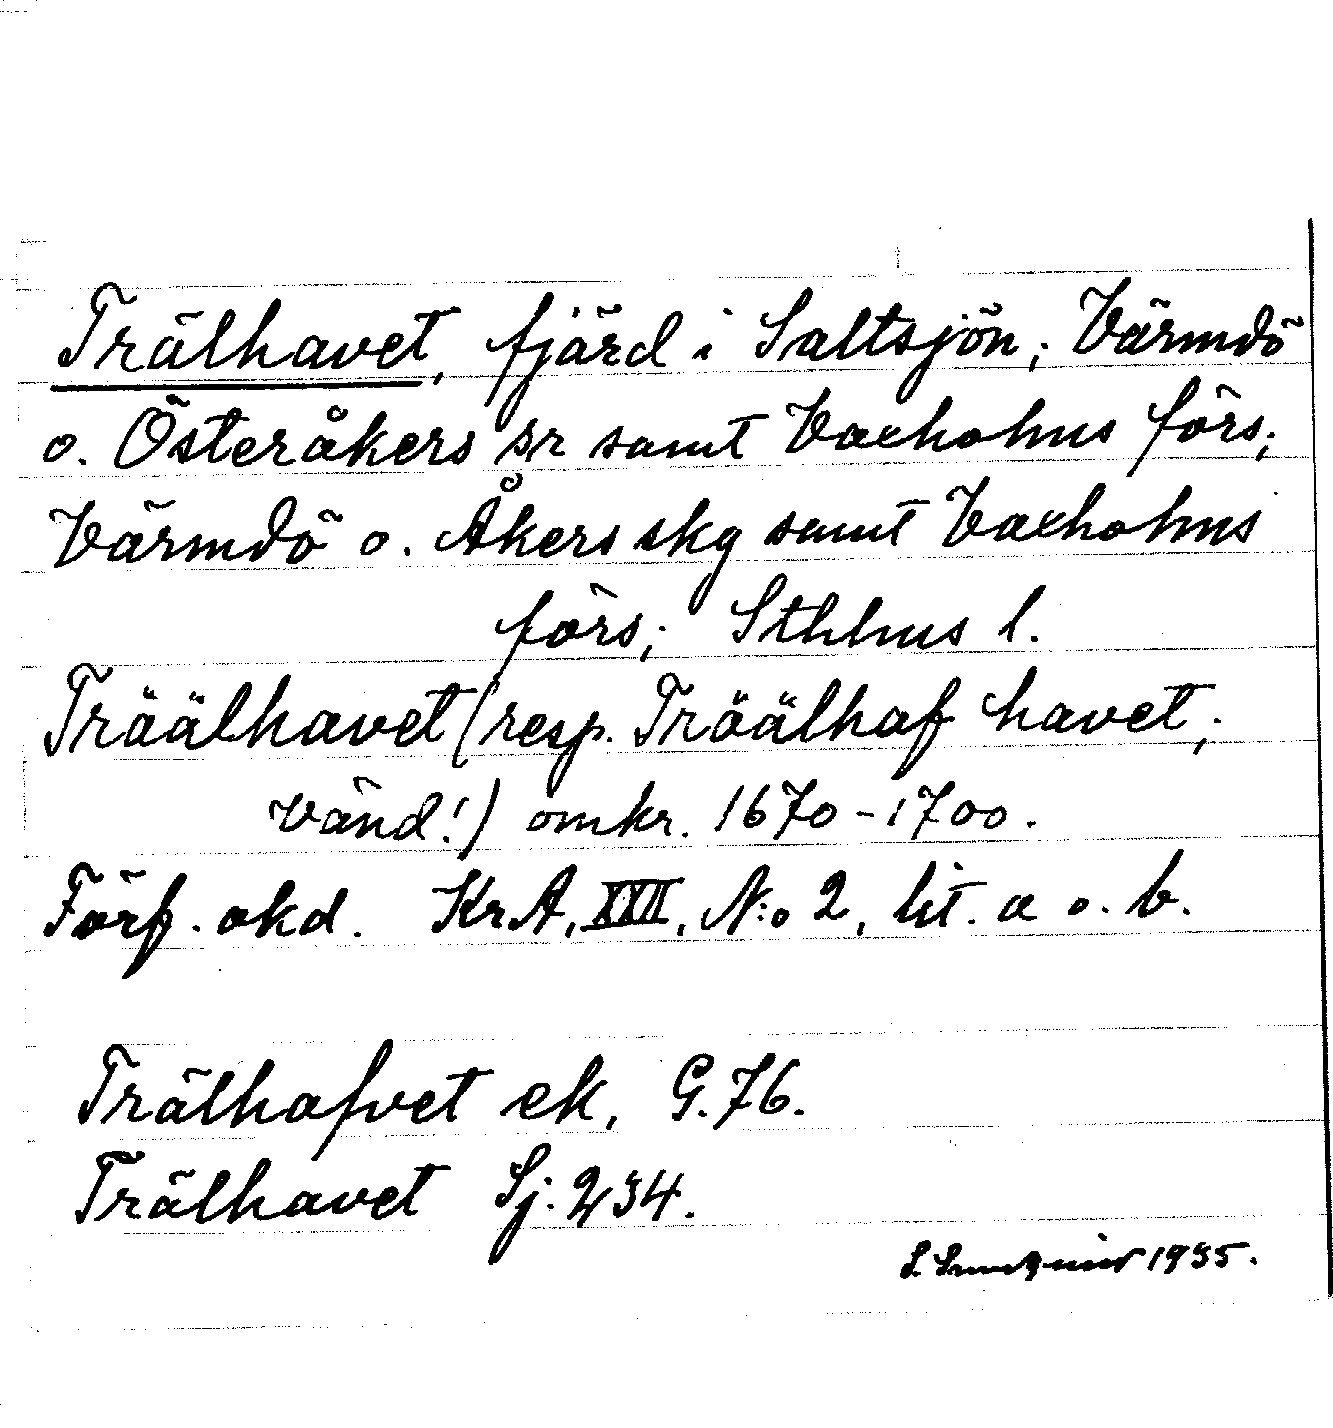 Trälhavet, fjärd i Saltsjön; Värmdö
o. Österåkers sr samt Vaxholms förs;
Värmdö o. Åkers skg samt Vaxholms
förs; Sthlms l.
Träälhavet (resp. Träälhaf havet;
vänd!) omkr. 1670-1700.
Förf. okd. KrA, XXII, N:o 2, lit. a o. b.
Trälhafvet ek, G.76.
Trälhavet Sj. 234.
1935.